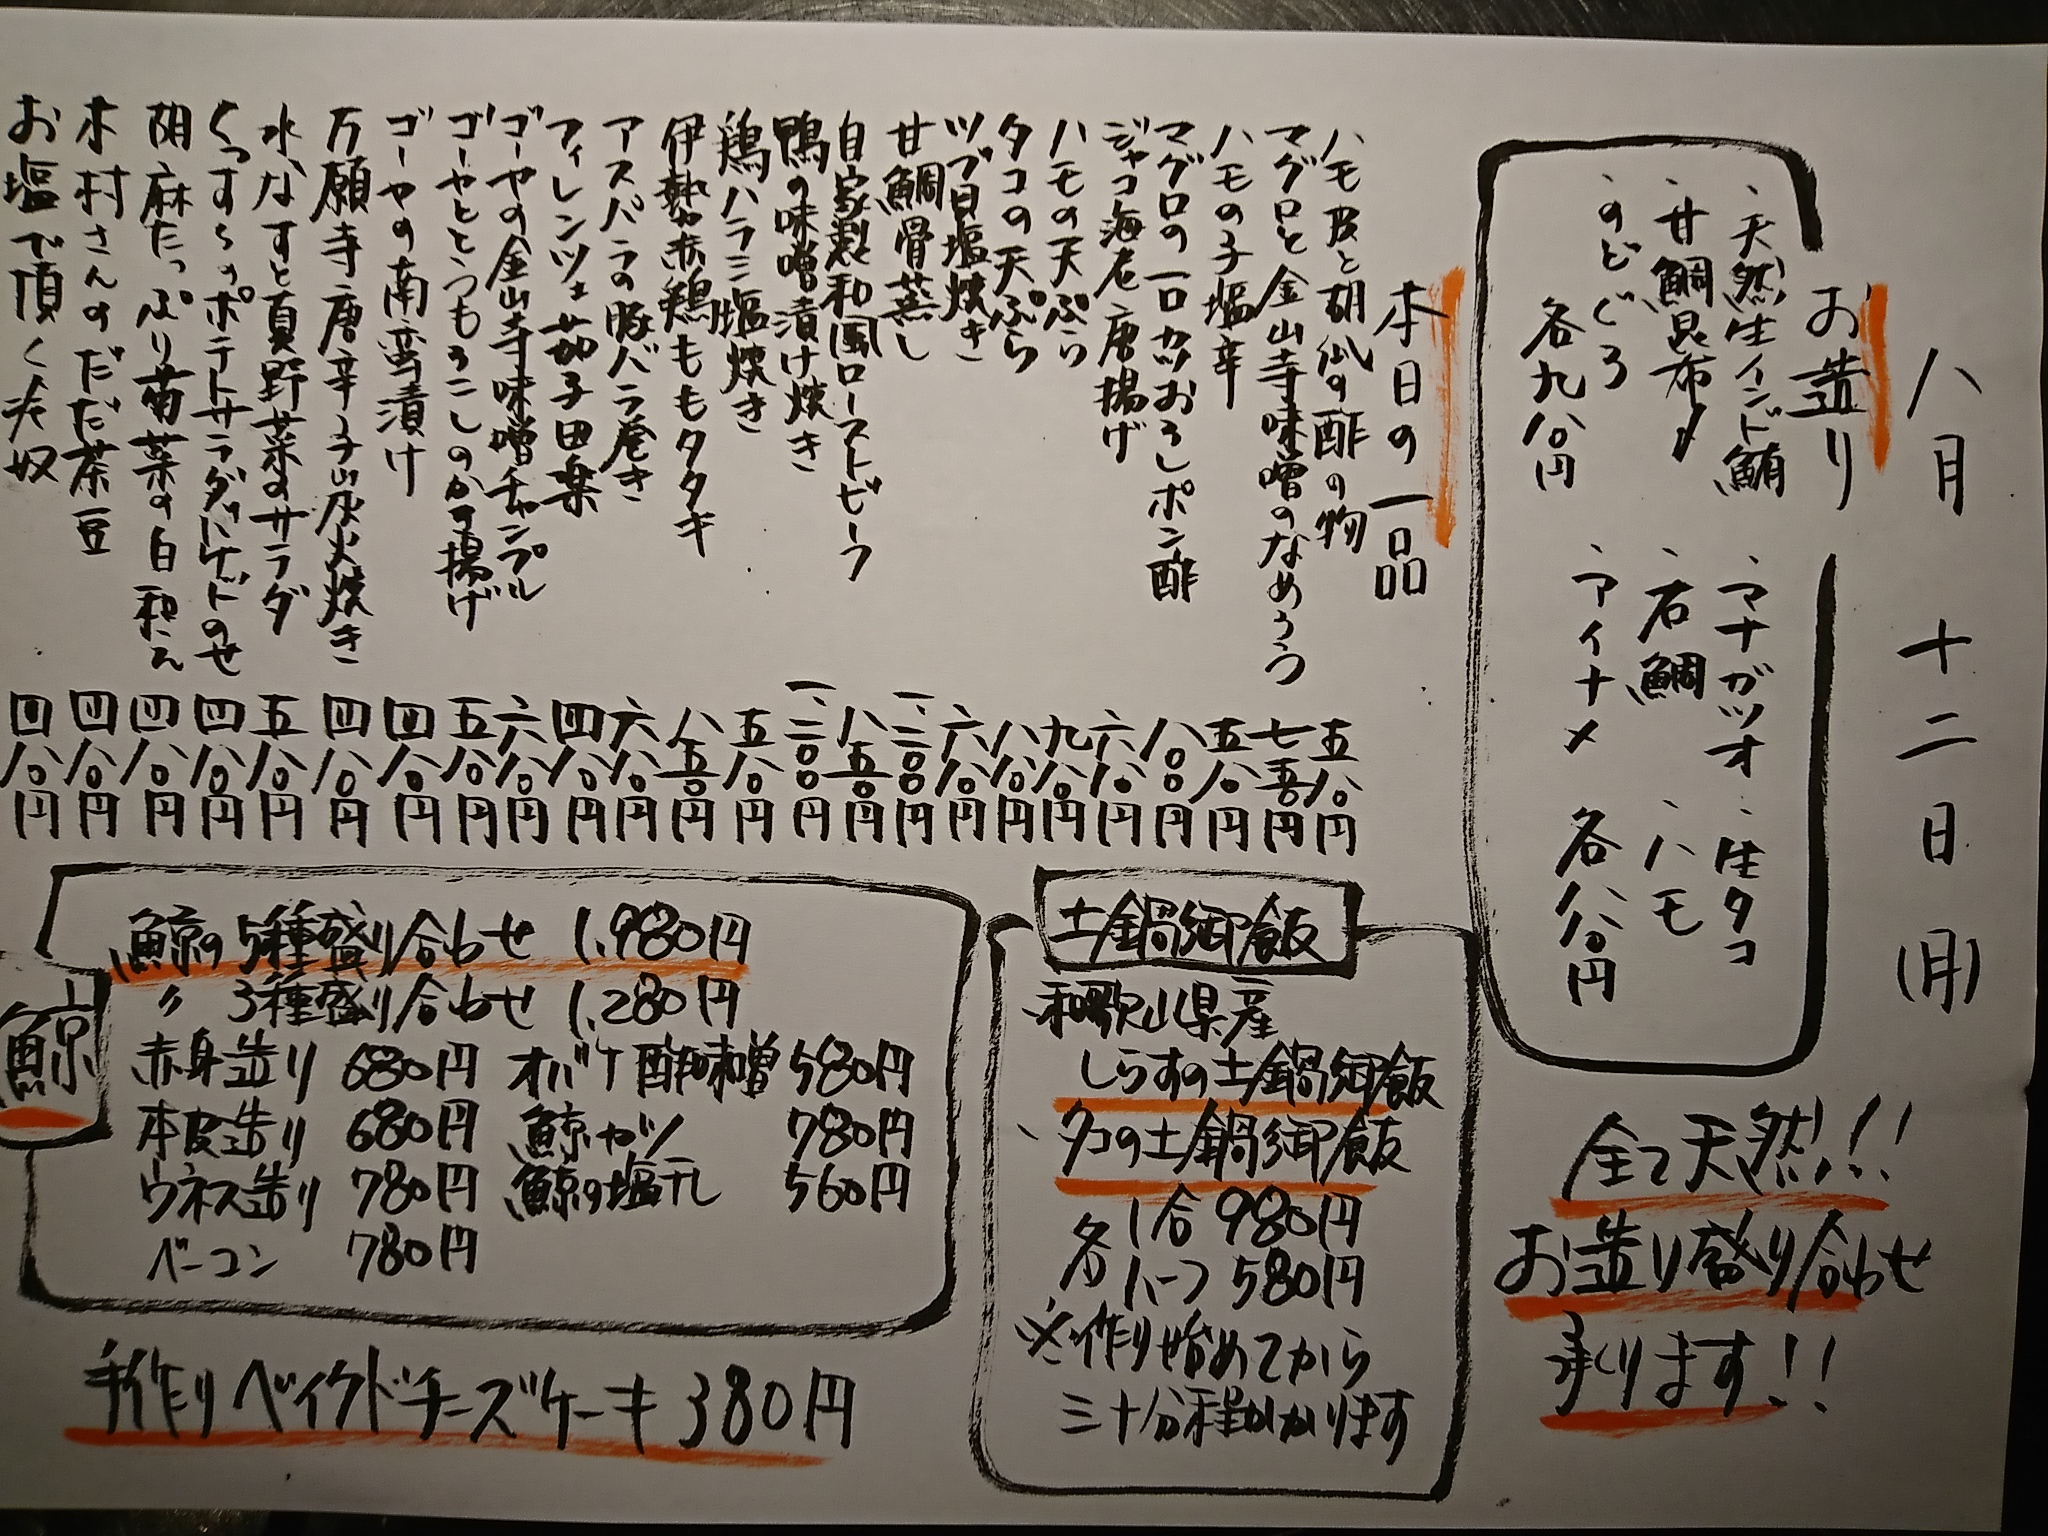 八月 十二日(月)
お造り
、天然生インド鮪 、マナガツオ 、生タコ
、甘鯛昆布〆 、石鯛 、ハモ
、のどぐろ 、アイナメ
各九八〇円 各八八〇円
全て天然!!
お造り盛り合わせ
承ります!!
本日の一品
ハモ皮と胡瓜の酢の物 五八〇円
マグロと金山寺味噌のなめろう 七五〇円
ハモの子塩辛 五八〇円
マグロの一口カツおろしポン酢 八〇〇円
ジャコ海老唐揚げ 六八〇円
ハモの天ぷら 九八〇円
タコの天ぷら 八八〇円
ツブ貝塩焼き 六八〇円
甘鯛骨蒸し 一、二〇〇円
自家製和風ローストビーフ 八五〇円
鴨の味噌漬け焼き 一、二〇〇円
鶏ハラミ塩焼き 五八〇円
伊勢赤鶏ももタタキ 八五〇円
アスパラの豚バラ巻き 六八〇円
フィレンツェ茄子田楽 四八〇円
ゴーヤの金山寺味噌チャンプル 六八〇円
ゴーヤととうもろこしのかき揚げ 五八〇円
ゴーヤの南蛮漬け 四八〇円
万願寺唐辛子炭火焼き 四八〇円
水なすと夏野菜のサラダ 五八〇円
くんすらのポテトサラダ 四八〇円
胡麻たっぷり菊菜の白和え 四八〇円
木村さんのだだ茶豆 四八〇円
お塩で頂く冷奴 四八〇円
土鍋御飯
和歌山県産
しらすの土鍋御飯
、タコの土鍋御飯
各 1合 980円
ハーフ 580円
※作り始めてから
三十分程かかります
鯨
鯨の5種盛り合わせ 1,980円
〃 3種盛り合わせ 1,280円
赤身造り 680円 オバケ酢味噌 580円
本皮造り 680円 鯨カツ 780円
ウネス造り 780円 鯨の塩干し 560円
ベーコン 780円
手作りベイクドチーズケーキ 380円